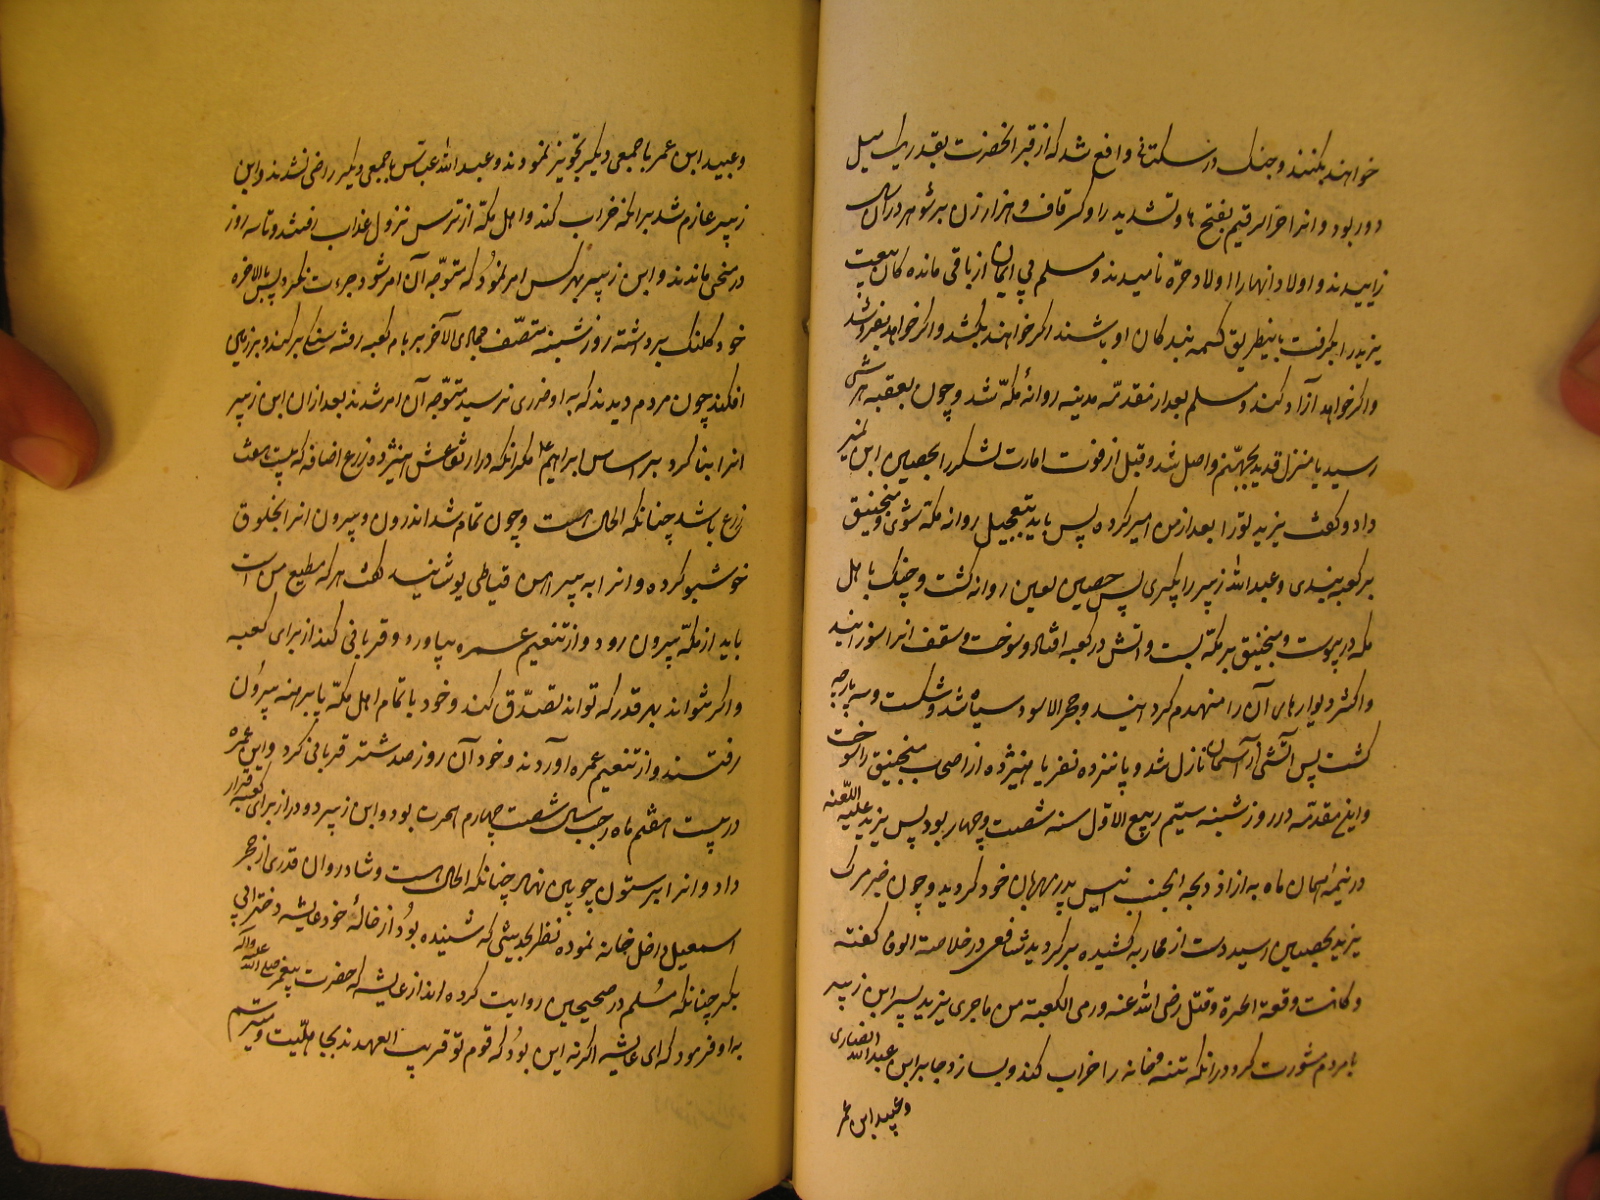 خواهند بکنند و جنک در سکستانی واقع شد که از قبر انحضرت بقدر یک میل
دور بود و انرا حرّاء رقیم بفتح حا و تشدید را و کسر قاف و هزار زن بی شوهر در ان سال
زاییدند و اولاد انها را اولاد حرّه نامیدند و مسلم بی ایمان از باقی مانده کان بیعت
یزید را بگرفت باینطریق که همه بنده کان او باشند اگر خواهد بکشد و اگر خواهد بفروشد
و اگر خواهد آزاد کند و مسلم بعد از مقدمه مدینه روانهٔ مکه شد و چون بعقبه هرشی
رسید یا منزل قدید بجهنم واصل شد و قبل از فوت امارت لشکر را بحصین ابن نمیر
داد و گفت یزید تو را بعد از من امیر کرده پس باید بتعجیل روانه مکه شوی و منجنیق
بر کعبه ببندی و عبدالله زبیر را بگیری پس حصین لعین روانه گشت و جنک با اهل
مکه در پیوست و منجنیق بر مکه بست و اتش در کعبه افتاد و سوخت و سقف انرا سوزانیدند
و اکثر دیوارهای آن را منهدم کردانیدند و حجر الاسود سیاه شد و شکست و سه پارچه
گشت پس آتشی از آسمان نازل شد و پانزده نفر یا هیژده از اصحاب منجنیق را سوخت
و این مقدمه در روز شنبه سیّم ربیع الاوّل سنه شصت و چهار بود پس یزید علیه اللّعنه
در نیمهٔ همان ماه به از اذ دیجه الجنب انیس پدر مهربان خود کردید و چون خبر مرک
یزید بحصین رسید دست از محاربه کشیده برکردید شافعی در خلاصة الوفا گفته
و کانت وقعة الحرة و قتل رضی الله عنه و رمی الکعبة من ماجری یزید پس ابن زبیر
با مردم مشورت کرد در انکه تتمه خانه را خراب کند و بسازد و جابر ابن عبدالله انصاری
و عبید ابن عمر
و عبید ابن عمر با جمعی دیکر تجویز نمودند و عبدالله عباس با جمعی دیکر راضی نشدند و ابن
زبیر عازم شد بر انکه خراب کند و اهل مکه از ترس نزول عذاب رفتند و تا سه روز
در منی ماندند و ابن زبیر هر کس امر نمود که متوجه آن امر شود جرءت نکرد پس بالاخره
خود کلنک برداشته روز شنبه منتصف جمادی الآخر بر بام کعبه رفته سنکی بر کند و بر زمین
افکند چون مردم دیدند که به او ضرری نرسید متوجه آن امر شدند بعد از ان ابن زبیر
انرا بنا کرد بر اساس ابراهیم ع مکر انکه در ارتفاعش هیژده زرع اضافه که بیست هفت
زرع باشد چنانکه الحال هست و چون تمام شد اندرون و بیرون انرا بخلوق
خوشبو کرده و انرا به پیراهن قباطی پوشانید گفت هر که مطیع من است
باید از مکه بیرون رود و از تنعیم عمره بیاورد و قربانی کند از برای کعبه
و اگر نتواند بهر قدر که تواند تصدّق کند و خود با تمام اهل مکه پا برهنه بیرون
رفتند و از تنعیم عمره آوردند و خود آن روز صد شتر قربانی کرد و این عمره
در بیست هفتم ماه رجب سال شصت چهارم هجرت بود و ابن زبیر دو در از برای کعبه قرار
داد و انرا بر ستون چوبین نهاد چنانکه الحال هست و شادروان قدری از حجر
اسمعیل داخل خانه نموده نظر بحدیثی که شنیده بود از خالهٔ خود عایشه دختر ابی
بکر چنانکه مُسلم در صحیحین روایت کرده اند از عایشه که حضرت پیغمبر صلی الله علیه و آله
به او فرمود که ای عایشه اگر نه این بود که قوم تو قریب العهدند بجاهلیت و میترسم